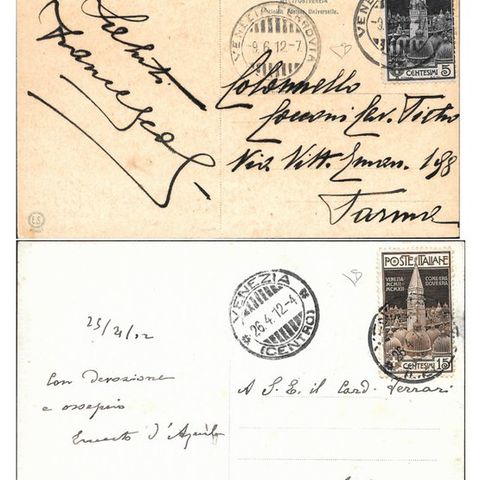 Saluti
Union Postale Universelle.
VENEZIA FERROVIA
-9.6.12-7
CENTESIMI 5
Colonnello
Cav. Pietro
Via Vitt. Eman. 198
Parma
POSTE ITALIANE
VENEZIA
MCMII
MCMXII
COM'ERA
DOV'ERA
CENTESIMI 15
VENEZIA
26.4.12-4
(CENTRO)
25/4/12
Con devozione
e ossequio
Ernesto d'Aquila
A S. E. il Card. Ferrari